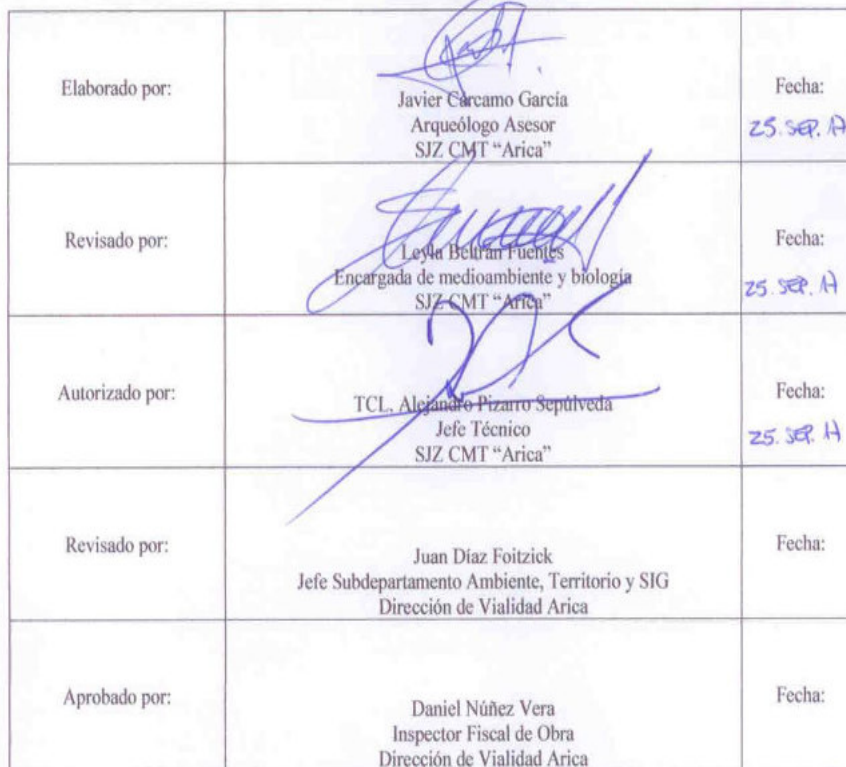 Elaborado por:
Javier Cárcamo García
Arqueólogo Asesor
SJZ CMT “Arica”
Fecha:
25. SEP. 17
Revisado por:
Leyla Beltrán Fuentes
Encargada de medioambiente y biología
SJZ CMT “Arica”
Fecha:
25. SEP. 17
Autorizado por:
TCL. Alejandro Pizarro Sepúlveda
Jefe Técnico
SJZ CMT “Arica”
Fecha:
25. SEP. 17
Revisado por:
Juan Díaz Foitzick
Jefe Subdepartamento Ambiente, Territorio y SIG
Dirección de Vialidad Arica
Fecha:
Aprobado por:
Daniel Núñez Vera
Inspector Fiscal de Obra
Dirección de Vialidad Arica
Fecha: